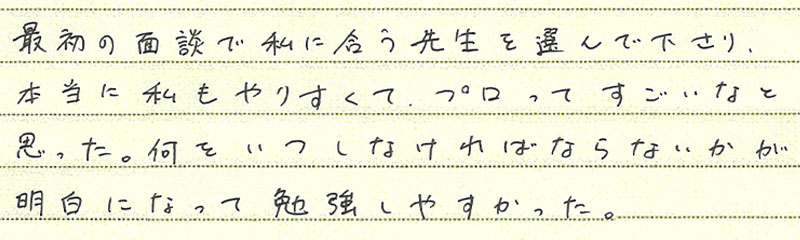 最初の面談で私に合う先生を選んで下さり、
本当に私もやりすくて、プロってすごいなと
思った。何をいつしなければならないかが
明白になって勉強しやすかった。